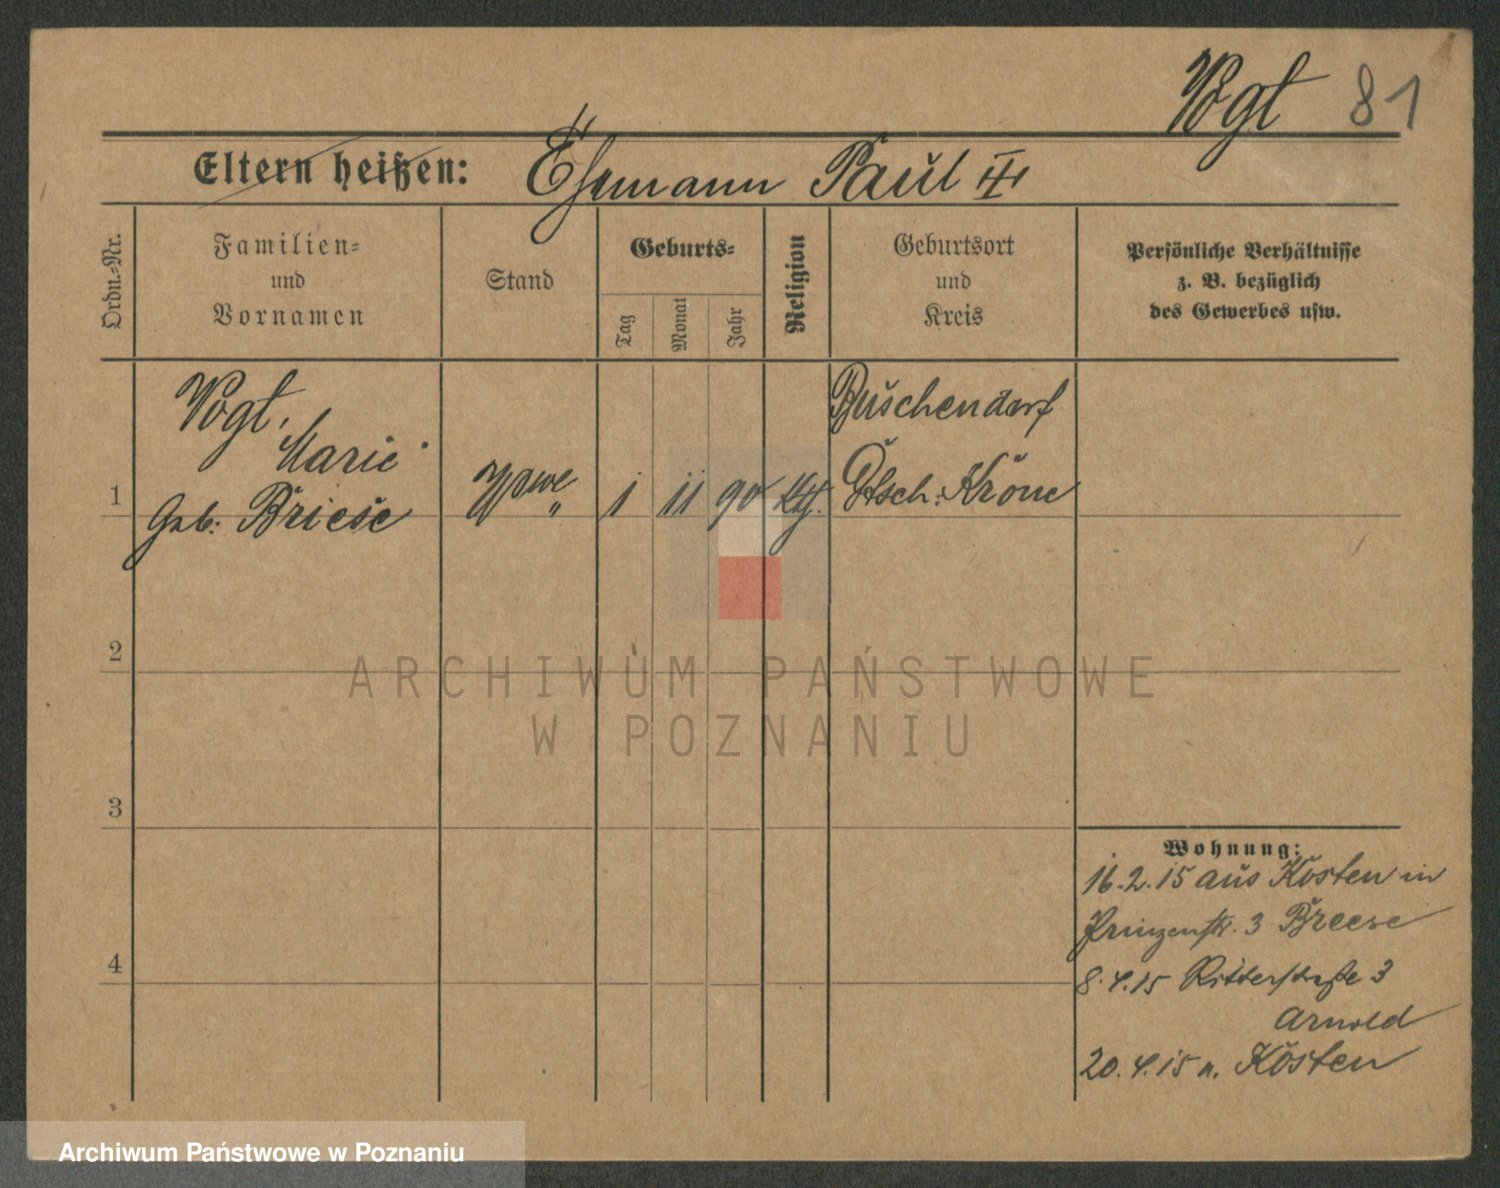 Vogt 81
Eltern heißen: Ehemann Paul III
Ordn.-Nr.
Familien-
und
Vornamen
Stand
Geburts-
Tag
Monat
Jahr
Religion
Geburtsort
und
Kreis
Persönliche Verhältnisse
z. B. bezüglich
des Gewerbes usw.
1
Vogt,
Marie
Geb: Briese
Wwe
1 11 90 kth.
Buschendorf
Dtsch: Krone
2
3
4
Wohnung:
16.2.15 aus Kosten in
Prinzenstr. 3 Breese
8.4.15 Ritterstraße 3
Arnold
20.4.15 n. Kosten
ARCHIWUM PAŃSTWOWE
W POZNANIU
Archiwum Państwowe w Poznaniu